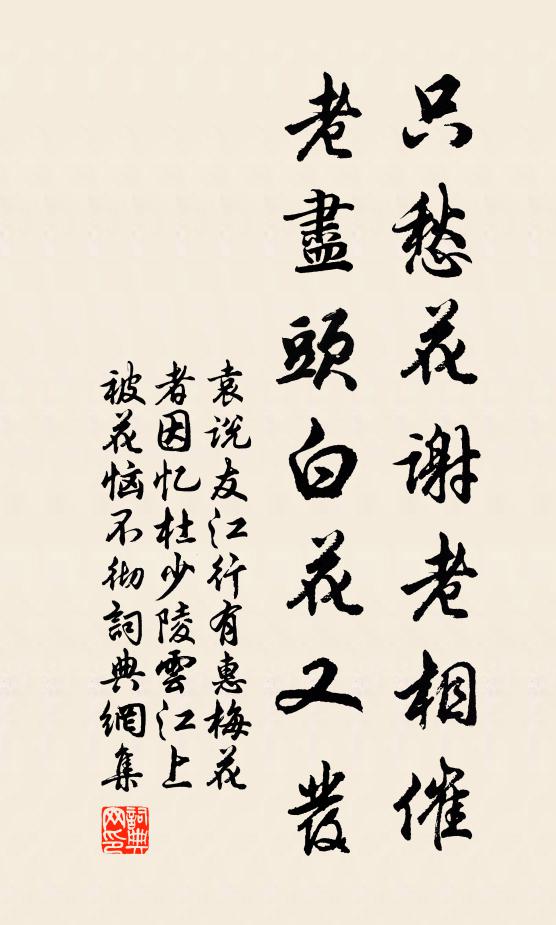 只愁花謝老相催
老盡頭白花又發
袁说友江行有惠梅花
者因忆杜少陵雲江上
被花恼不彻詞典網集
詞典网印